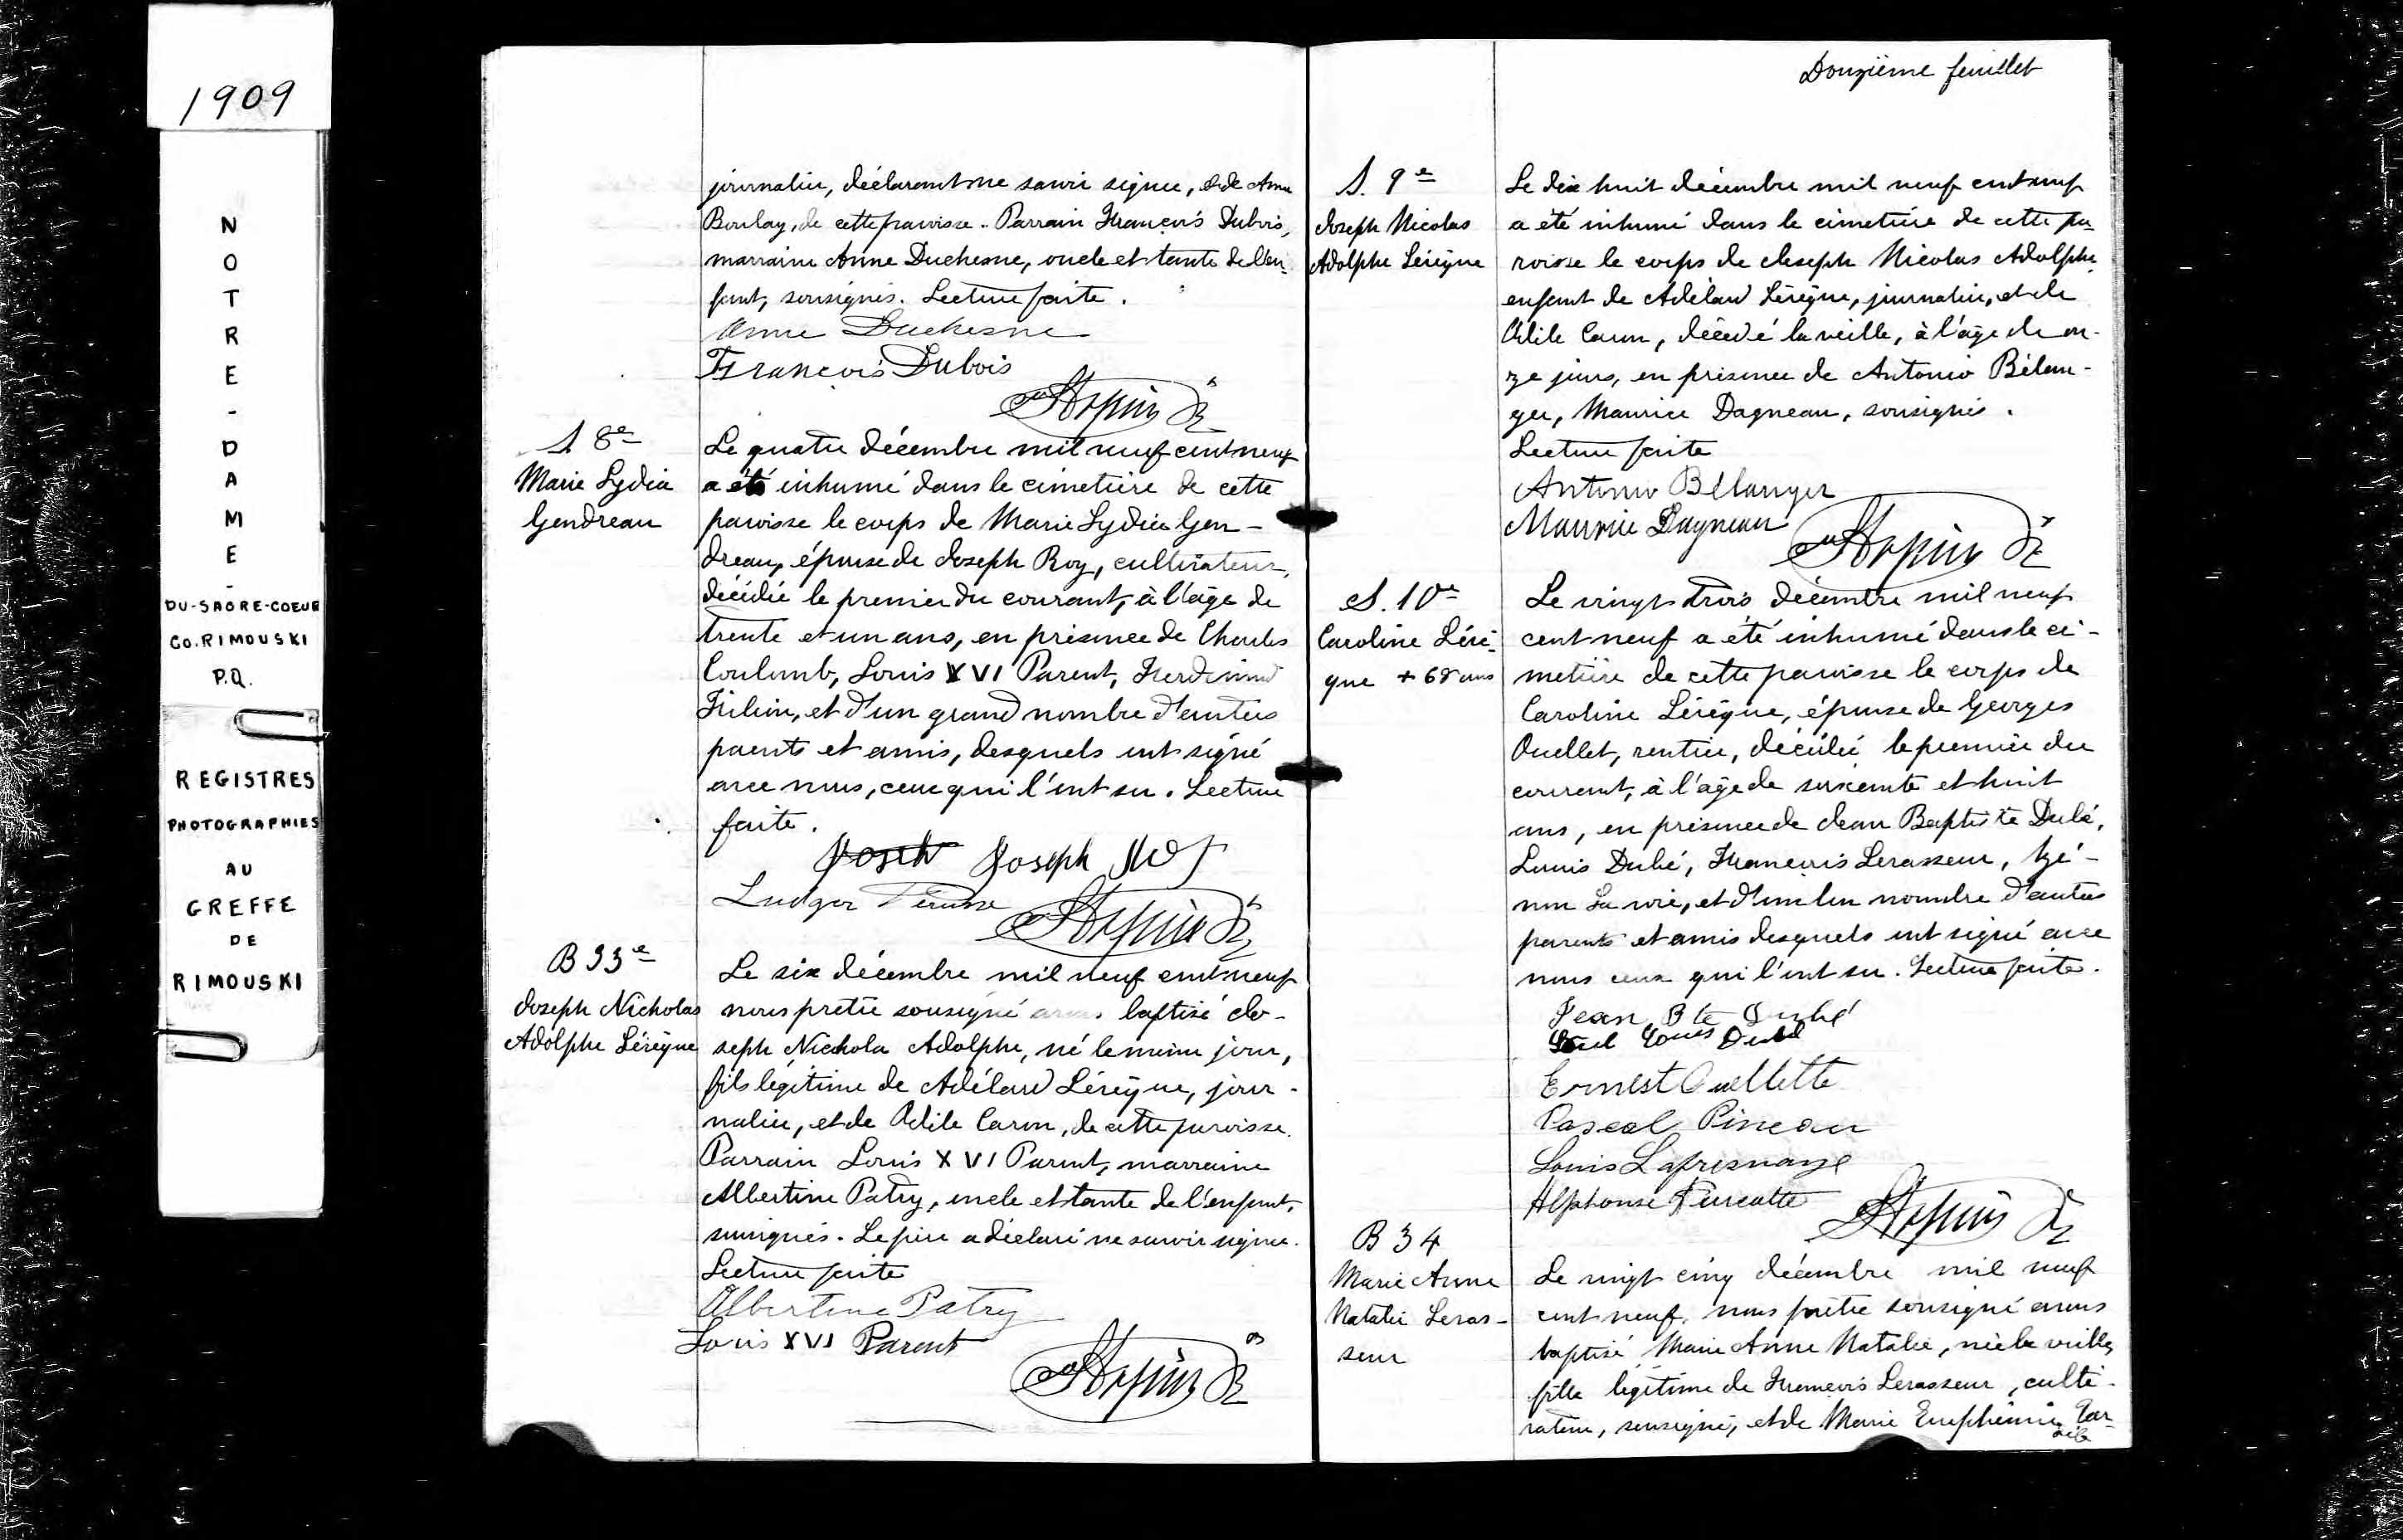 1909
NOTRE-DAME-
DU-SACRE-COEUR
CO. RIMOUSKI
P.Q.
REGISTRES
PHOTOGRAPHIES
AU
GREFFE
DE
RIMOUSKI
journalier, déclarant ne savoir signer, et de Anna
Boulay, de cette paroisse. Parrain François Dubois,
marraine Anne Duchesne, oncle et tante de l'en-
fant, soussignés. Lecture faite.
Anne Duchesne
François Dubois
S 8e
Marie Lydia
Gendreau
Le quatre décembre mil neuf cent neuf
a été inhumé dans le cimetière de cette
paroisse le corps de Marie Lydia Gen-
dreau, épouse de Joseph Roy, cultivateur,
décédée le premier du courant, à l'âge de
trente et un ans, en présence de Charles
Coulomb, Louis XVI Parent, Ferdinand
et d'un grand nombre d'autres
parents et amis, desquels ont signé
avec nous, ceux qui l'ont su. Lecture
faite.
Joseph
Ludger
B 33e
Joseph Nicholas
Adolphe Lévêque
Le six décembre mil neuf cent neuf
nous prêtre soussigné avons baptisé Jo-
seph Nichola Adolphe, né le même jour,
fils légitime de Adélard Lévêque, jour-
nalier, et de Odile Caron, de cette paroisse.
Parrain Louis XVI Parent, marraine
Albertine Patry, oncle et tante de l'enfant,
soussignés. Le père a déclaré ne savoir signer.
Lecture faite
Albertine Patry
Louis XVI Parent
Douzième feuillet
S. 9e
Joseph Nicolas
Adolphe Lévêque
Le dix huit décembre mil neuf cent neuf
a été inhumé dans le cimetière de cette pa-
roisse le corps de Joseph Nicolas Adolphe
enfant de Adélard Lévêque, journalier, et de
Odile Caron, décédé la veille, à l'âge de on-
ze jours, en présence de Antonio Bélan-
ger, Maurice Dagneau, soussignés.
Lecture faite
Antonio Bélanger
Maurice Dagneau
S. 10e
Caroline Lévê-
que + 68 ans
Le vingt trois décembre mil neuf
cent neuf a été inhumé dans le ci-
metière de cette paroisse le corps de
Caroline Lévêque, épouse de Georges
Ouellet, rentier, décédée le premier du
courant, à l'âge de soixante et huit
ans, en présence de Jean Baptiste Dubé,
Louis Dubé, François Levasseur, Zé-
non Lavoie, et d'un bon nombre d'autres
parents et amis desquels ont signé avec
nous ceux qui l'ont su. Lecture faite.
Jean Bte Dubé
Louis Dubé
Ernest Ouellette
Pascal Pineau
Louis Lafresnaye
Alphonse Turcotte
B 34
Marie Anne
Natalie Levas-
seur
Le vingt cinq décembre mil neuf
cent neuf, nous prêtre soussigné avons
baptisé Marie Anne Natalie, née la veille,
fille légitime de François Levasseur, culti-
vateur, soussigné, et de Marie Euphémie